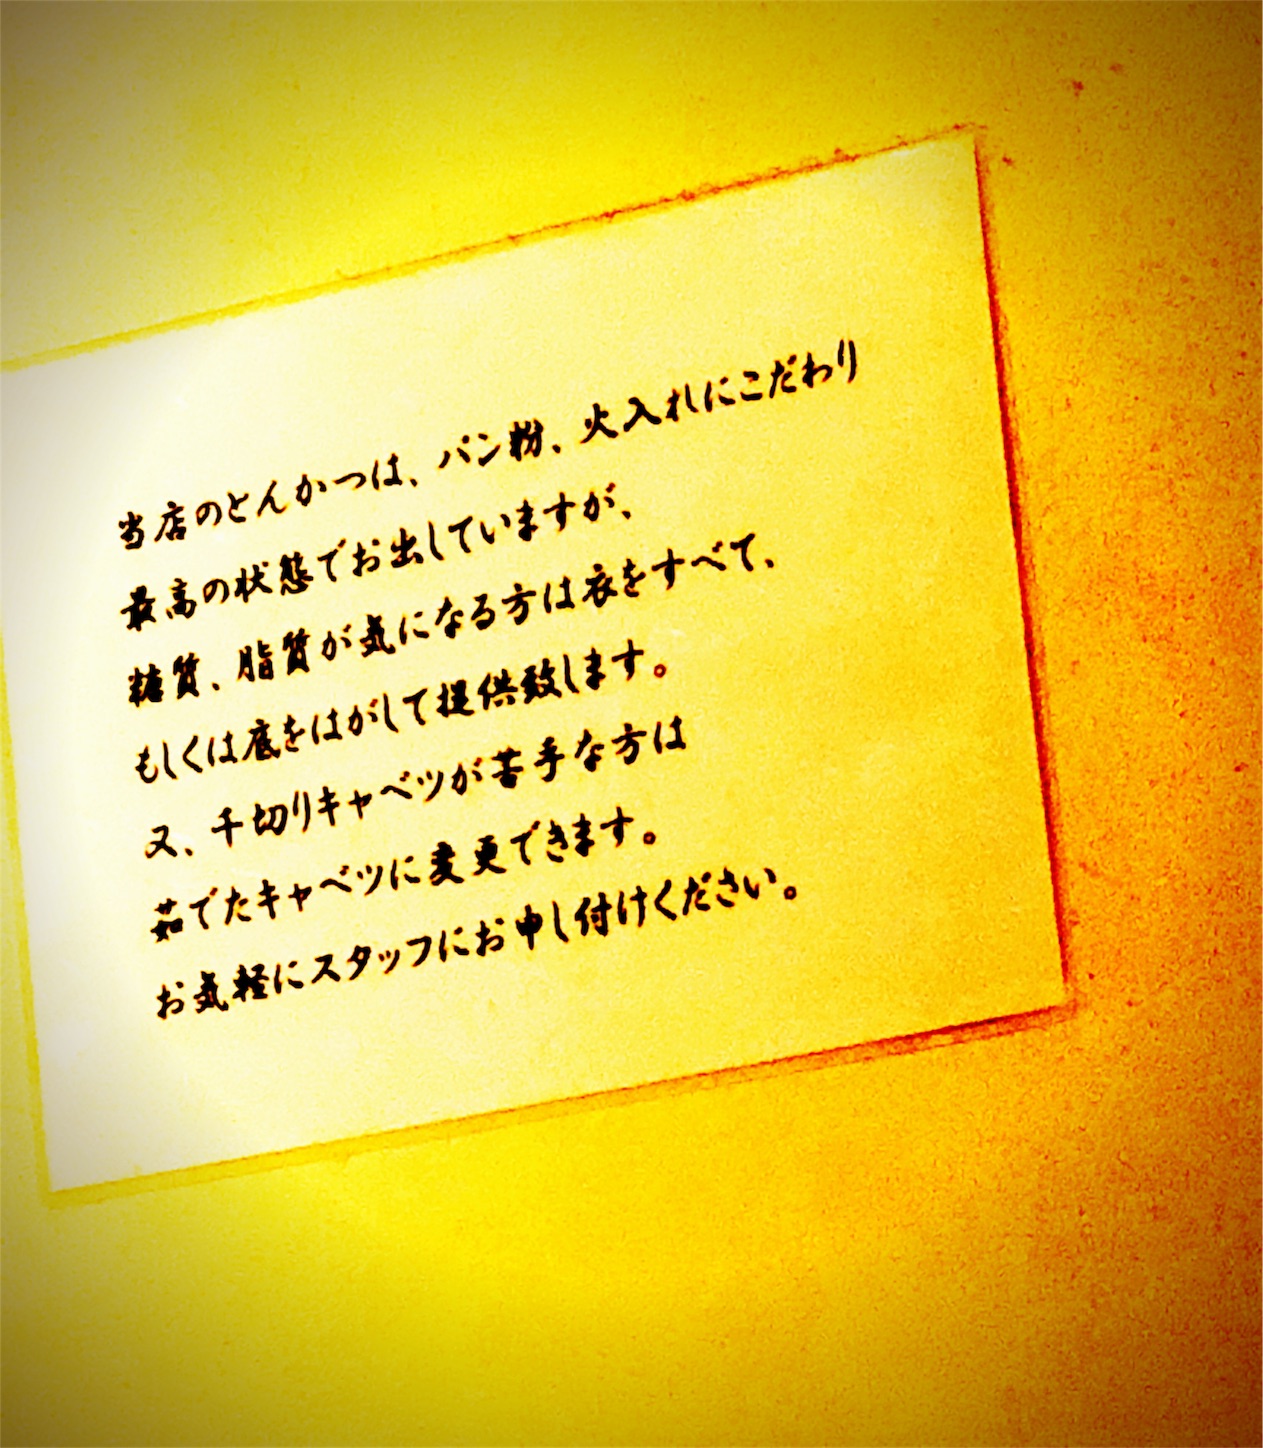 当店のとんかつは、パン粉、火入れにこだわり
最高の状態でお出していますが、
糖質、脂質が気になる方は衣をすべて、
もしくは底をはがして提供致します。
又、千切りキャベツが苦手な方は
茹でたキャベツに変更できます。
お気軽にスタッフにお申し付けください。